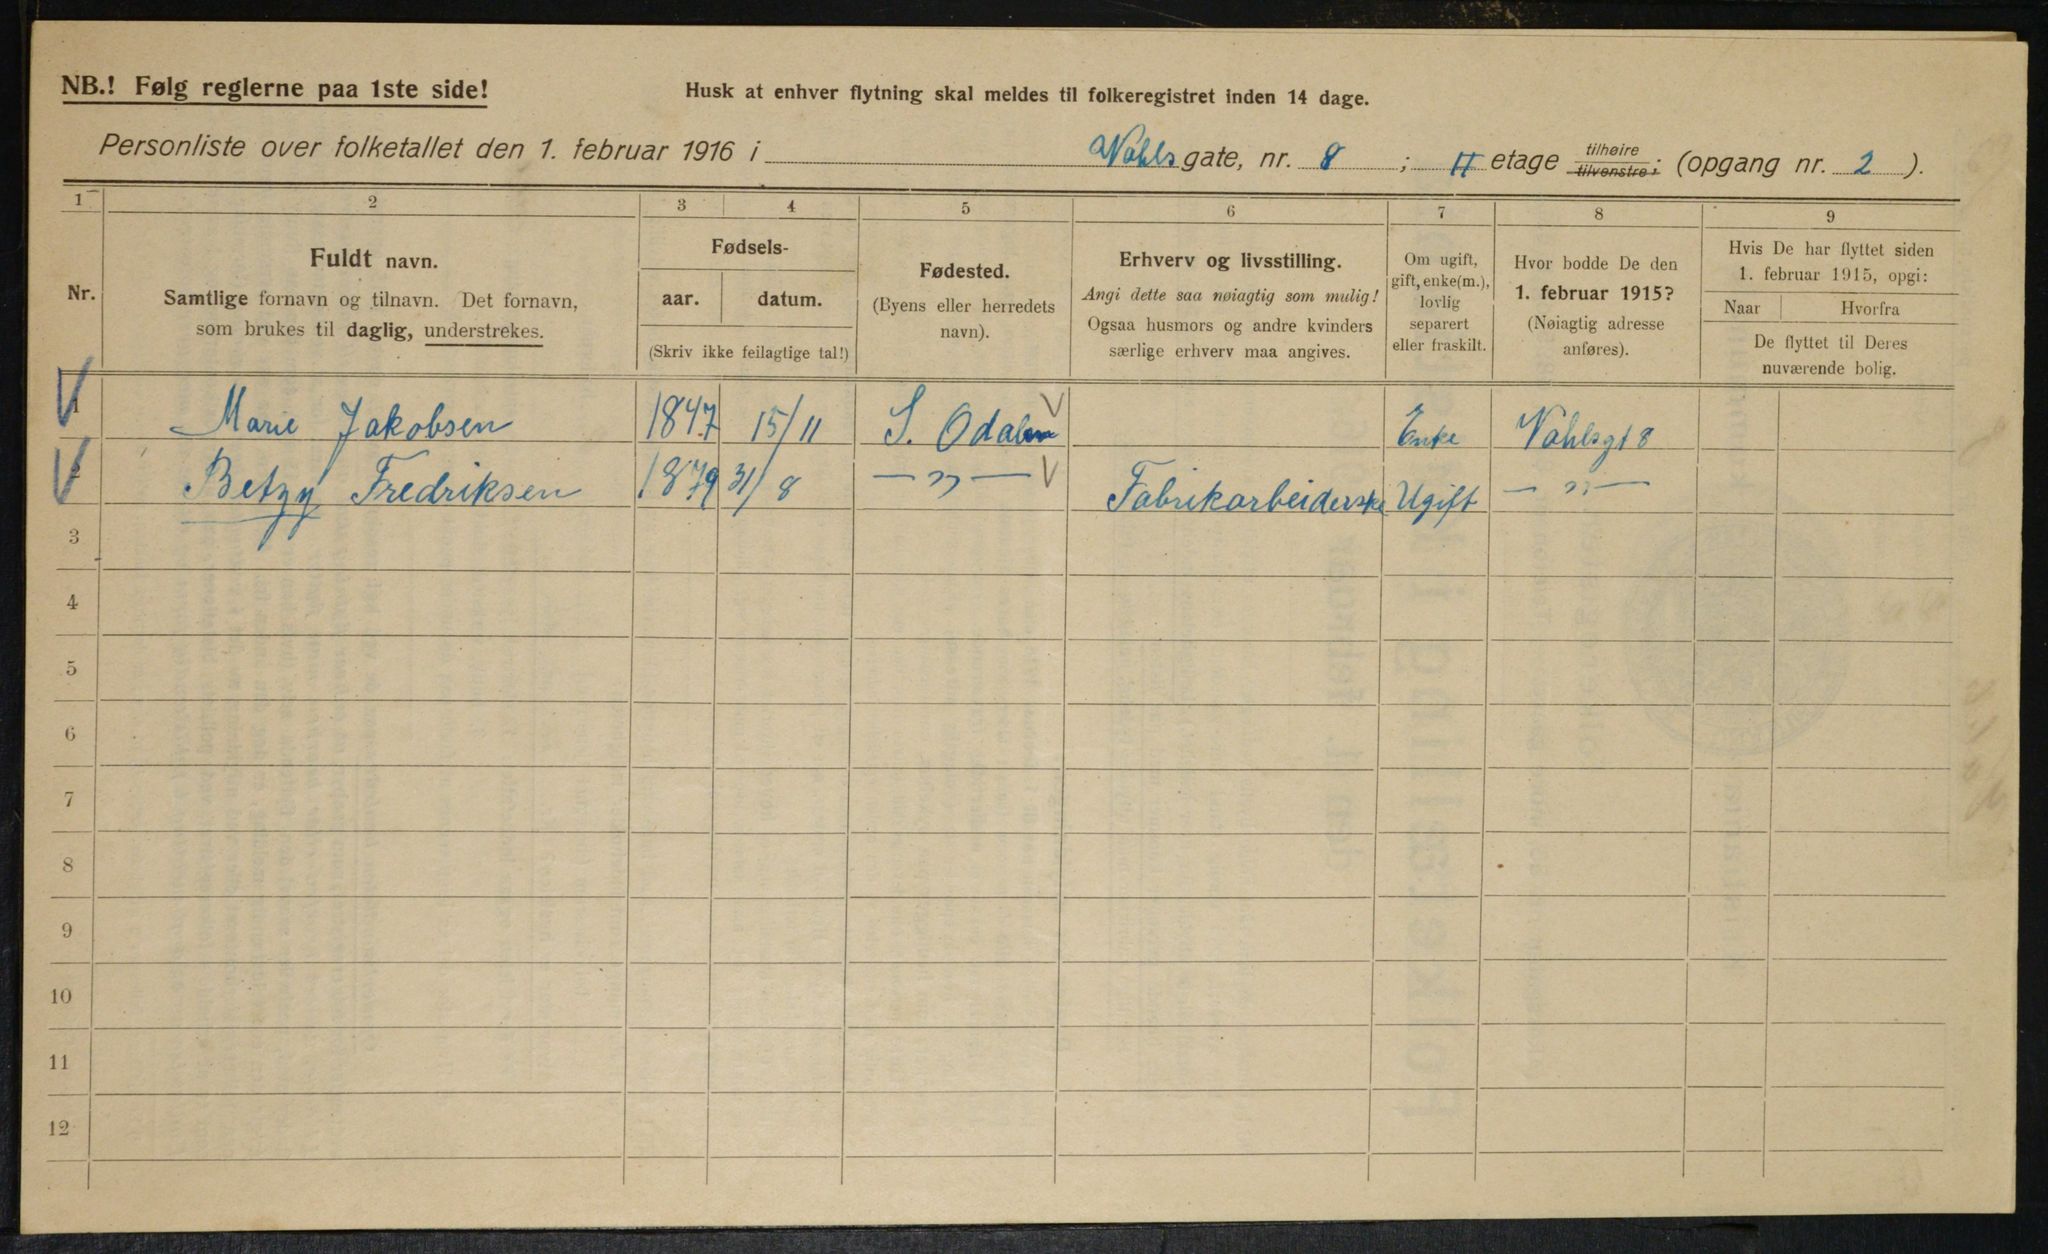 NB.! Følg reglerne paa 1ste side!
Husk at enhver flytning skal meldes til folkeregistret inden 14 dage.
Personliste over folketallet den 1. februar 1916 i Vahls gate, nr. 8 ; II etage tilhøire tilvenstre; (opgang nr. 2 ).
1 2 3 4 5 6 7 8 9
Nr.
Fuldt navn.
Samtlige fornavn og tilnavn. Det fornavn,
som brukes til daglig, understrekes.
Fødsels-
aar. datum.
(Skriv ikke feilagtige tal!)
Fødested.
(Byens eller herredets
navn).
Erhverv og livsstilling.
Angi dette saa nøiagtig som mulig!
Ogsaa husmors og andre kvinders
særlige erhverv maa angives.
Om ugift,
gift, enke(m.),
lovlig
separert
eller fraskilt.
Hvor bodde De den
1. februar 1915?
(Nøiagtig adresse
anføres).
Hvis De har flyttet siden
1. februar 1915, opgi:
Naar Hvorfra
De flyttet til Deres
nuværende bolig.
1 Marie Jakobsen 1847 15/11 S. Odalen Enke Vahlsgt 8
2 Betzy Fredriksen 1879 31/8 — " — Fabrikarbeiderske Ugift — " —
3
4
5
6
7
8
9
10
11
12